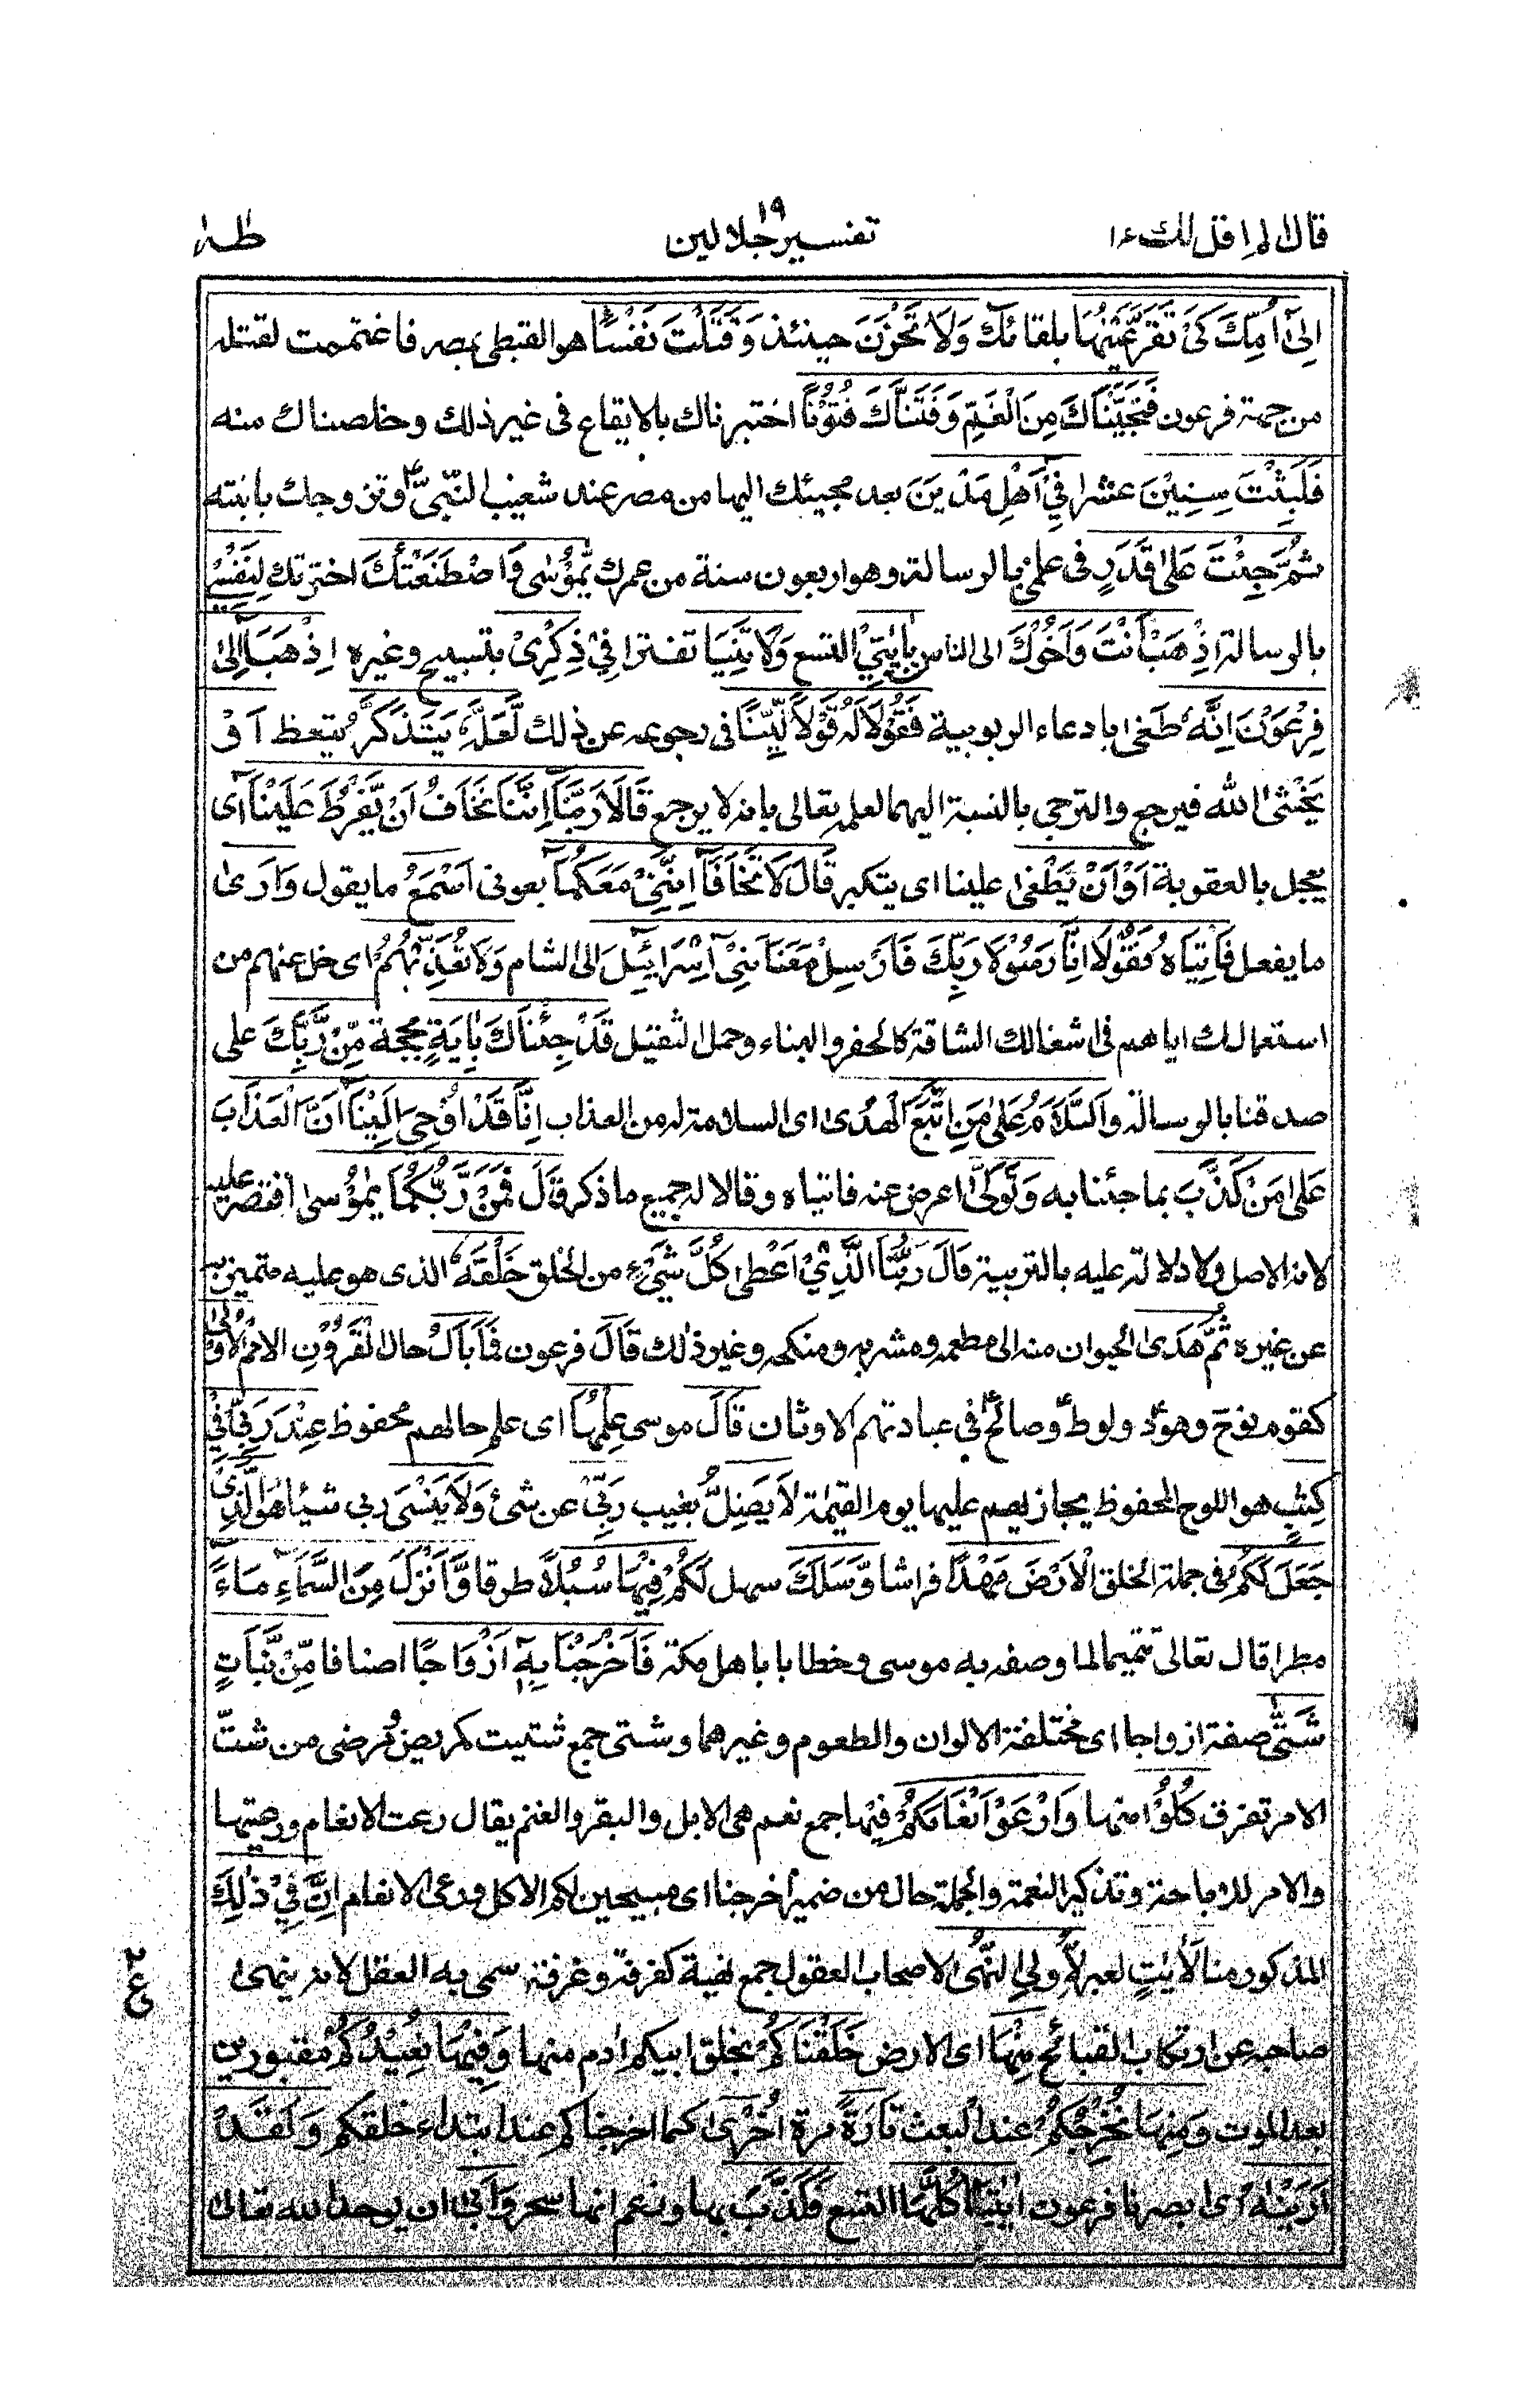 قال الم اقل لك ١٦
تفسير جلالين
١٩
طٰهٰ
اِلٰٓى اُمِّكَ كَىْ تَقَرَّ عَيْنُهَا بلقائك وَلَا تَحْزَنَ حينئذ وَقَتَلْتَ نَفْسًا هو القبطى بمصر فاغتممت لقتله
من جهة فرعون فَنَجَّيْنَاكَ مِنَ الْغَمِّ وَفَتَنَّاكَ فُتُوْنًا اختبرناك بالايقاع فى غير ذلك وخلصناك منه
فَلَبِثْتَ سِنِيْنَ عشرا فِيْٓ اَهْلِ مَدْيَنَ بعد مجيئك اليها من مصر عند شعيب النَّبِيِّ وتزوجك بابنته
ثُمَّ جِئْتَ عَلٰى قَدَرٍ فى علمى بالرسالة وهو اربعون سنة من عمرك يّٰمُوْسٰى وَاصْطَنَعْتُكَ اخترتك لِنَفْسِيْ
بالرسالة اِذْهَبْ اَنْتَ وَاَخُوْكَ الى الناس بِاٰيٰتِيْ التسع وَلَا تَنِيَا تفترا فِيْ ذِكْرِىْ بتسبيح وغيره اِذْهَبَآ اِلٰى
فِرْعَوْنَ اِنَّهٗ طَغٰى بادعاء الربوبية فَقُوْلَا لَهٗ قَوْلًا لَّيِّنًا فى رجوعه عن ذلك لَّعَلَّهٗ يَتَذَكَّرُ يتعظ اَوْ
يَخْشٰى الله فيرجع والترجى بالنسبة اليهما لعلمه تعالى بانه لا يرجع قَالَا رَبَّنَآ اِنَّنَا نَخَافُ اَنْ يَّفْرُطَ عَلَيْنَآ اى
يعجل بالعقوبة اَوْ اَنْ يَّطْغٰى علينا اى يتكبر قَالَ لَا تَخَافَآ اِنَّنِيْ مَعَكُمَآ بعونى اَسْمَعُ ما يقول وَاَرٰى
ما يفعل فَاْتِيَاهُ فَقُوْلَآ اِنَّا رَسُوْلَا رَبِّكَ فَاَرْسِلْ مَعَنَا بَنِيْٓ اِسْرَآئِيْلَ الى الشام وَلَا تُعَذِّبْهُمْ اى خل عنهم من
استعمالك اياهم فى اشغالك الشاقة كالحفر والبناء وحمل الثقيل قَدْ جِئْنَاكَ بِاٰيَةٍ بحجة مِّنْ رَّبِّكَ على
صدقنا بالرسالة وَالسَّلَامُ عَلٰى مَنِ اتَّبَعَ الْهُدٰى اى السلامة له من العذاب اِنَّا قَدْ اُوْحِيَ اِلَيْنَآ اَنَّ الْعَذَابَ
عَلٰى مَنْ كَذَّبَ بما جئنا به وَتَوَلّٰى اعرض عنه فاتياه وقالا له جميع ما ذكر قَالَ فَمَنْ رَّبُّكُمَا يٰمُوْسٰى اقتصر عليه
لانه الاصل ولادلاله عليه بالتربية قَالَ رَبُّنَا الَّذِيْٓ اَعْطٰى كُلَّ شَيْءٍ من الخلق خَلْقَهٗ الذى هو عليه متميز به
عن غيره ثُمَّ هَدٰى الحيوان منه الى مطعمه ومشربه ومنكحه وغير ذلك قَالَ فرعون فَمَا بَالُ حال الْقُرُوْنِ الامم الْاُوْلٰى
كقوم نوح وهود ولوط وصالح فى عبادتهم الاوثان قَالَ موسى عِلْمُهَا اى علم حالهم محفوظ عِنْدَ رَبِّيْ فِيْ
كِتٰبٍ هو اللوح المحفوظ يجازيهم عليها يوم القيٰمة لَا يَضِلُّ يغيب رَبِّيْ عن شئ وَلَا يَنْسَى ربى شيئا هو الَّذِىْ
جَعَلَ لَكُمُ فى جملة الخلق الْاَرْضَ مَهْدًا فراشا وَّسَلَكَ سهل لَكُمْ فِيْهَا سُبُلًا طرقا وَّاَنْزَلَ مِنَ السَّمَآءِ مَآءً
مطرا قال تعالى تتميما لما وصفه به موسى وخطابا باهل مكة فَاَخْرَجْنَا بِهٖٓ اَزْوَاجًا اصنافا مِّنْ نَّبَاتٍ
شَتّٰى صفة ازواجا اى مختلفة الالوان والطعوم وغيرهما وشتى جمع شتيت كمريض ومرضى من شتّ
الامر تفرق كُلُوْا منها وَارْعَوْا اَنْعَامَكُمْ فيها جمع نعم هى الابل والبقر والغنم يقال رعت الانعام ورعيتها
والامر للاباحة وتذكير النعمة والجملة حال من ضمير اخرجنا اى مبيحين لكم الاكل ورعى الانعام اِنَّ فِيْ ذٰلِكَ
المذكور منا لَاٰيٰتٍ لعبر لِّاُولِي النُّهٰى لاصحاب العقول جمع نهية كغرفة وغرف سمى به العقل لانه ينهى
صاحبه عن ارتكاب القبائح مِنْهَا اى الارض خَلَقْنٰكُمْ بخلق ابيكم اٰدم منها وَفِيْهَا نُعِيْدُكُمْ مقبورين
بعد الموت وَمِنْهَا نُخْرِجُكُمْ عند البعث تَارَةً مرة اُخْرٰى كما اخرجناكم عند ابتداء خلقكم وَلَقَدْ
اَرَيْنٰهُ اى بصرنا فرعون اٰيٰتِنَا كُلَّهَا التسع فَكَذَّبَ بها وزعم انها سحر وَاَبٰى ان يوحد الله تعالى
ع
٢